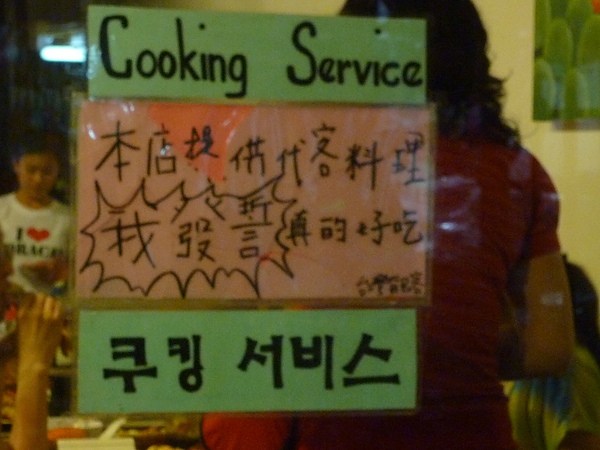 Cooking Service
本店提供代客料理
我發誓真的好吃
쿠킹 서비스
I ❤